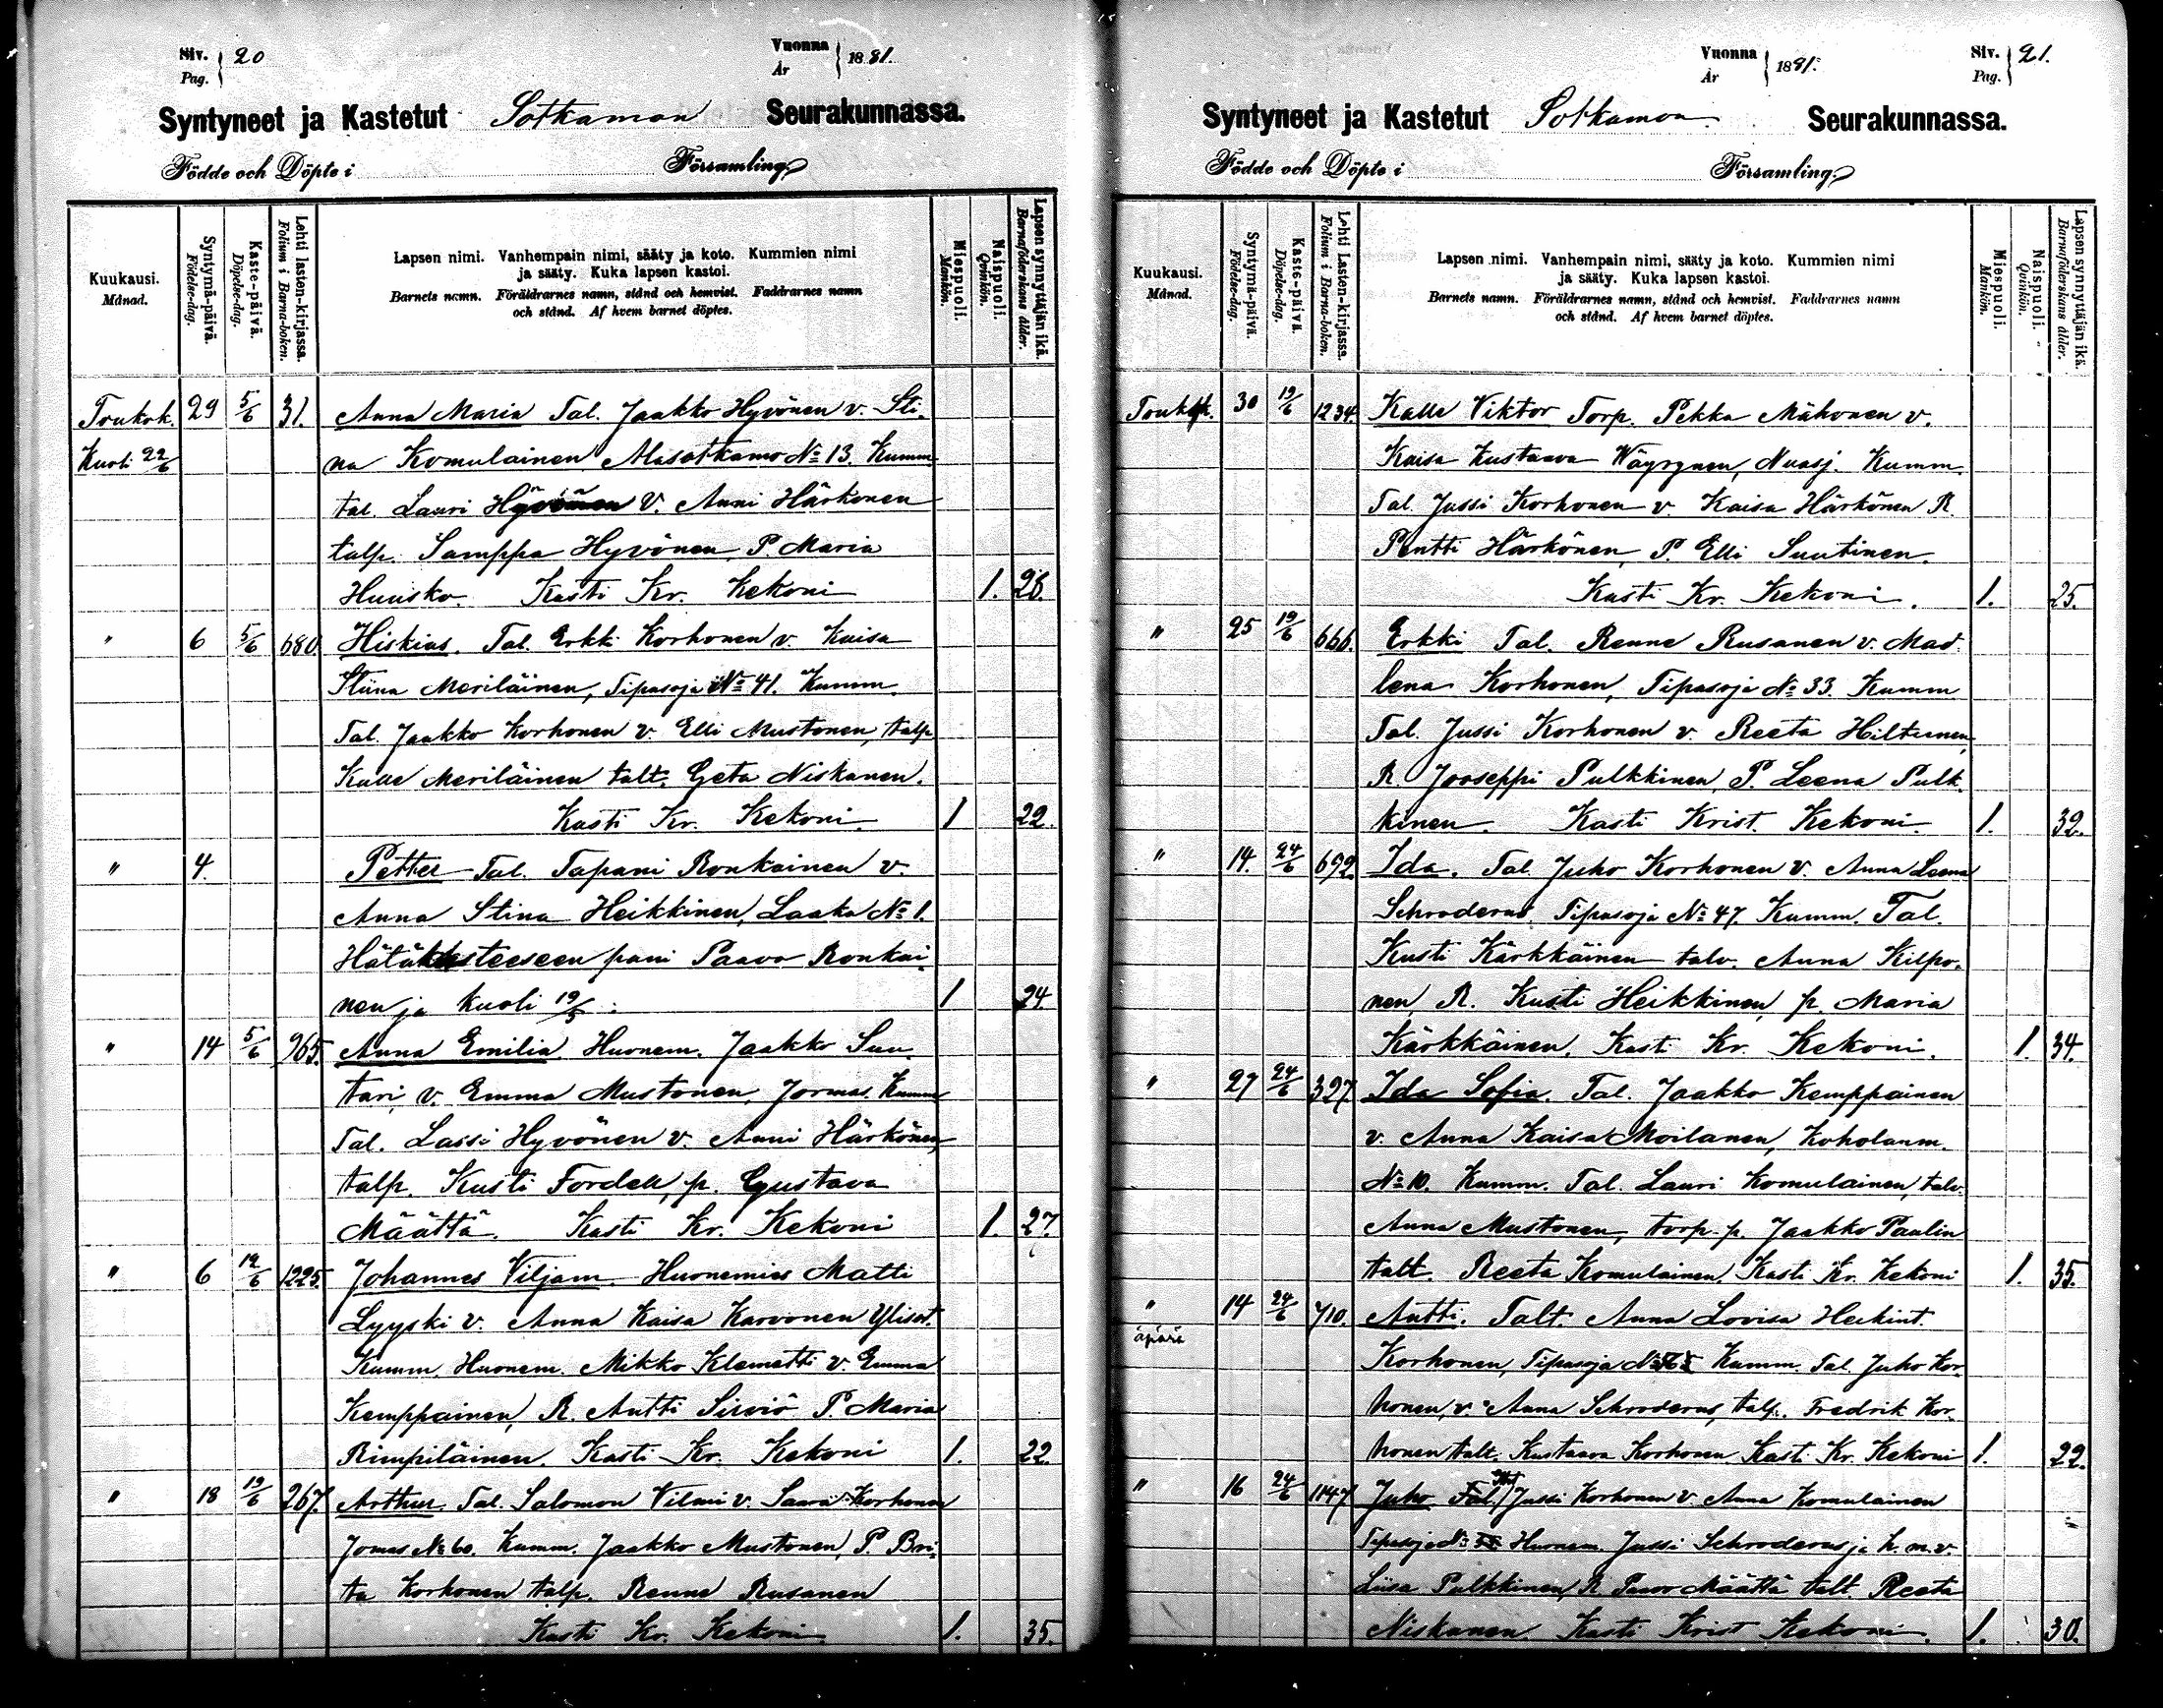 Siv. 20
Pag.
Vuonna 1881.
År
Syntyneet ja Kastetut Sotkamon Seurakunnassa.
Födde och Döpte i Församling
Kuukausi.
Månad.
Syntymä-päivä.
Födelse-dag.
Kaste-päivä.
Döpelse-dag.
Lehti lasten-kirjassa.
Folium i Barna-boken.
Lapsen nimi. Vanhempain nimi, sääty ja koto. Kummien nimi
ja sääty. Kuka lapsen kastoi.
Barnets namn. Föräldrarnes namn, stånd och hemvist. Faddrarnes namn
och stånd. Af hvem barnet döptes.
Miespuoli.
Mankön.
Naispuoli.
Qvinkön.
Lapsen synnyttäjän ikä.
Barnaföderskans ålder.
Toukok. 29 5/6 31. Anna Maria Tal. Jaakko Hyvönen v. Sti-
Kuoli 22/6 na Komulainen Alasotkamo No 13. Kumm.
tal. Lauri Hyvönen v. Anni Härkonen
talp. Samppa Hyvönen, P. Maria
Huusko. Kasti Kr. Kekoni 1. 28.
" 6 5/6 680. Hiskias. Tal. Erkki Korhonen v. Kaisa
Stiina Meriläinen, Tipasoja No 41. Kumm.
Tal. Jaakko Korhonen v. Elli Mustonen, talp
Kalle Meriläinen talt. Greta Niskanen.
Kasti Kr. Kekoni. 1 22.
" 4. Petter Tal. Tapani Ronkainen v.
Anna Stina Heikkinen, Laaka No 1.
Hätäkasteeseen pani Paavo Ronkai-
nen ja kuoli 19/5. 1 24.
" 14 5/6 965. Anna Emilia. Huonem. Jaakko Suu-
tari v. Emma Mustonen, Jormas. Kumm
Tal. Lassi Hyvönen v. Anni Härkönen,
talp. Kusti Fordell, p. Gustava
Määttä. Kasti Kr. Kekoni 1. 27.
" 6 19/6 1225. Johannes Viljam. Huonemies Matti
Lyyski v. Anna Kaisa Karvonen Ylisot.
Kumm. Huonem. Mikko Klemetti v. Emma
Kemppainen, R. Antti Sirviö P. Maria
Rimpiläinen. Kasti Kr. Kekoni 1. 22.
" 18 19/6 267. Arthur Tal. Salomon Vilmi v. Saara Korhonen
Jomas No 60. Kumm. Jaakko Mustonen, P. Bri-
ta Korhonen talp. Renne Rusanen
Kasti Kr. Kekoni. 1. 35.
Vuonna 1881.
År
Siv. 21.
Pag.
Syntyneet ja Kastetut Sotkamon Seurakunnassa.
Födde och Döpte i Församling
Kuukausi.
Månad.
Syntymä-päivä.
Födelse-dag.
Kaste-päivä.
Döpelse-dag.
Lehti Lasten-kirjassa.
Folium i Barna-boken.
Lapsen nimi. Vanhempain nimi, sääty ja koto. Kummien nimi
ja sääty. Kuka lapsen kastoi.
Barnets namn. Föräldrarnes namn, stånd och hemvist. Faddrarnes namn
och stånd. Af hvem barnet döptes.
Miespuoli.
Mankön.
Naispuoli.
Qvinkön.
Lapsen synnyttäjän ikä
Barnaföderskans ålder.
Toukok. 30 19/6 1234. Kalle Viktor Torp. Pekka Mähonen v.
Kaisa Kustaava Wäyrynen, Nuasj. Kumm.
Tal. Jussi Korhonen v. Kaisa Härkönen R.
Pentti Härkönen, P. Elli Suutinen.
Kasti Kr. Kekoni. 1. 25.
" 25 19/6 666. Erkki Tal. Renne Rusanen v. Mad-
lena Korhonen, Tipasoja No 33. Kumm
Tal. Jussi Korhonen v. Reeta Hiltunen,
R. Jooseppi Pulkkinen, P. Leena Pulk-
kinen. Kasti Krist. Kekoni. 1. 32.
" 14. 24/6 692. Ida. Tal. Juho Korhonen v. Anna Leena
Schroderus, Tipasoja No 47. Kumm. Tal.
Kusti Kärkkäinen talv. Anna Kilpo-
nen, R. Kusti Heikkinen, p. Maria
Kärkkäinen. Kasti Kr. Kekoni. 1. 34.
" 27 24/6 327. Ida Sofia. Tal. Jaakko Kemppainen
v. Anna Kaisa Moilanen, Koholanm.
No 10. Kumm. Tal. Lauri Komulainen, talv.
Anna Mustonen, torp. p. Jaakko Paulin
talt. Reeta Komulainen. Kasti Kr. Kekoni 1. 35.
" 14 24/6 710. Antti. Talt. Anna Lovisa Heikint.
äpärä Korhonen, Tipasoja No Kumm. Tal. Juho Kor-
honen, v. Anna Schroderus, talp. Fredrik Kor-
honen talt. Kustaava Korhonen Kasti Kr. Kekoni 1. 22.
" 16 24/6 1147 Juho Jussi Korhonen v. Anna Komulainen
Tipasoja No Huonem. Jussi Schroderus ja h. m. v.
Liisa Pulkkinen, R. Paavo Määttä talt. Reeta
Niskanen. Kasti Krist Kekoni. 1. 30.